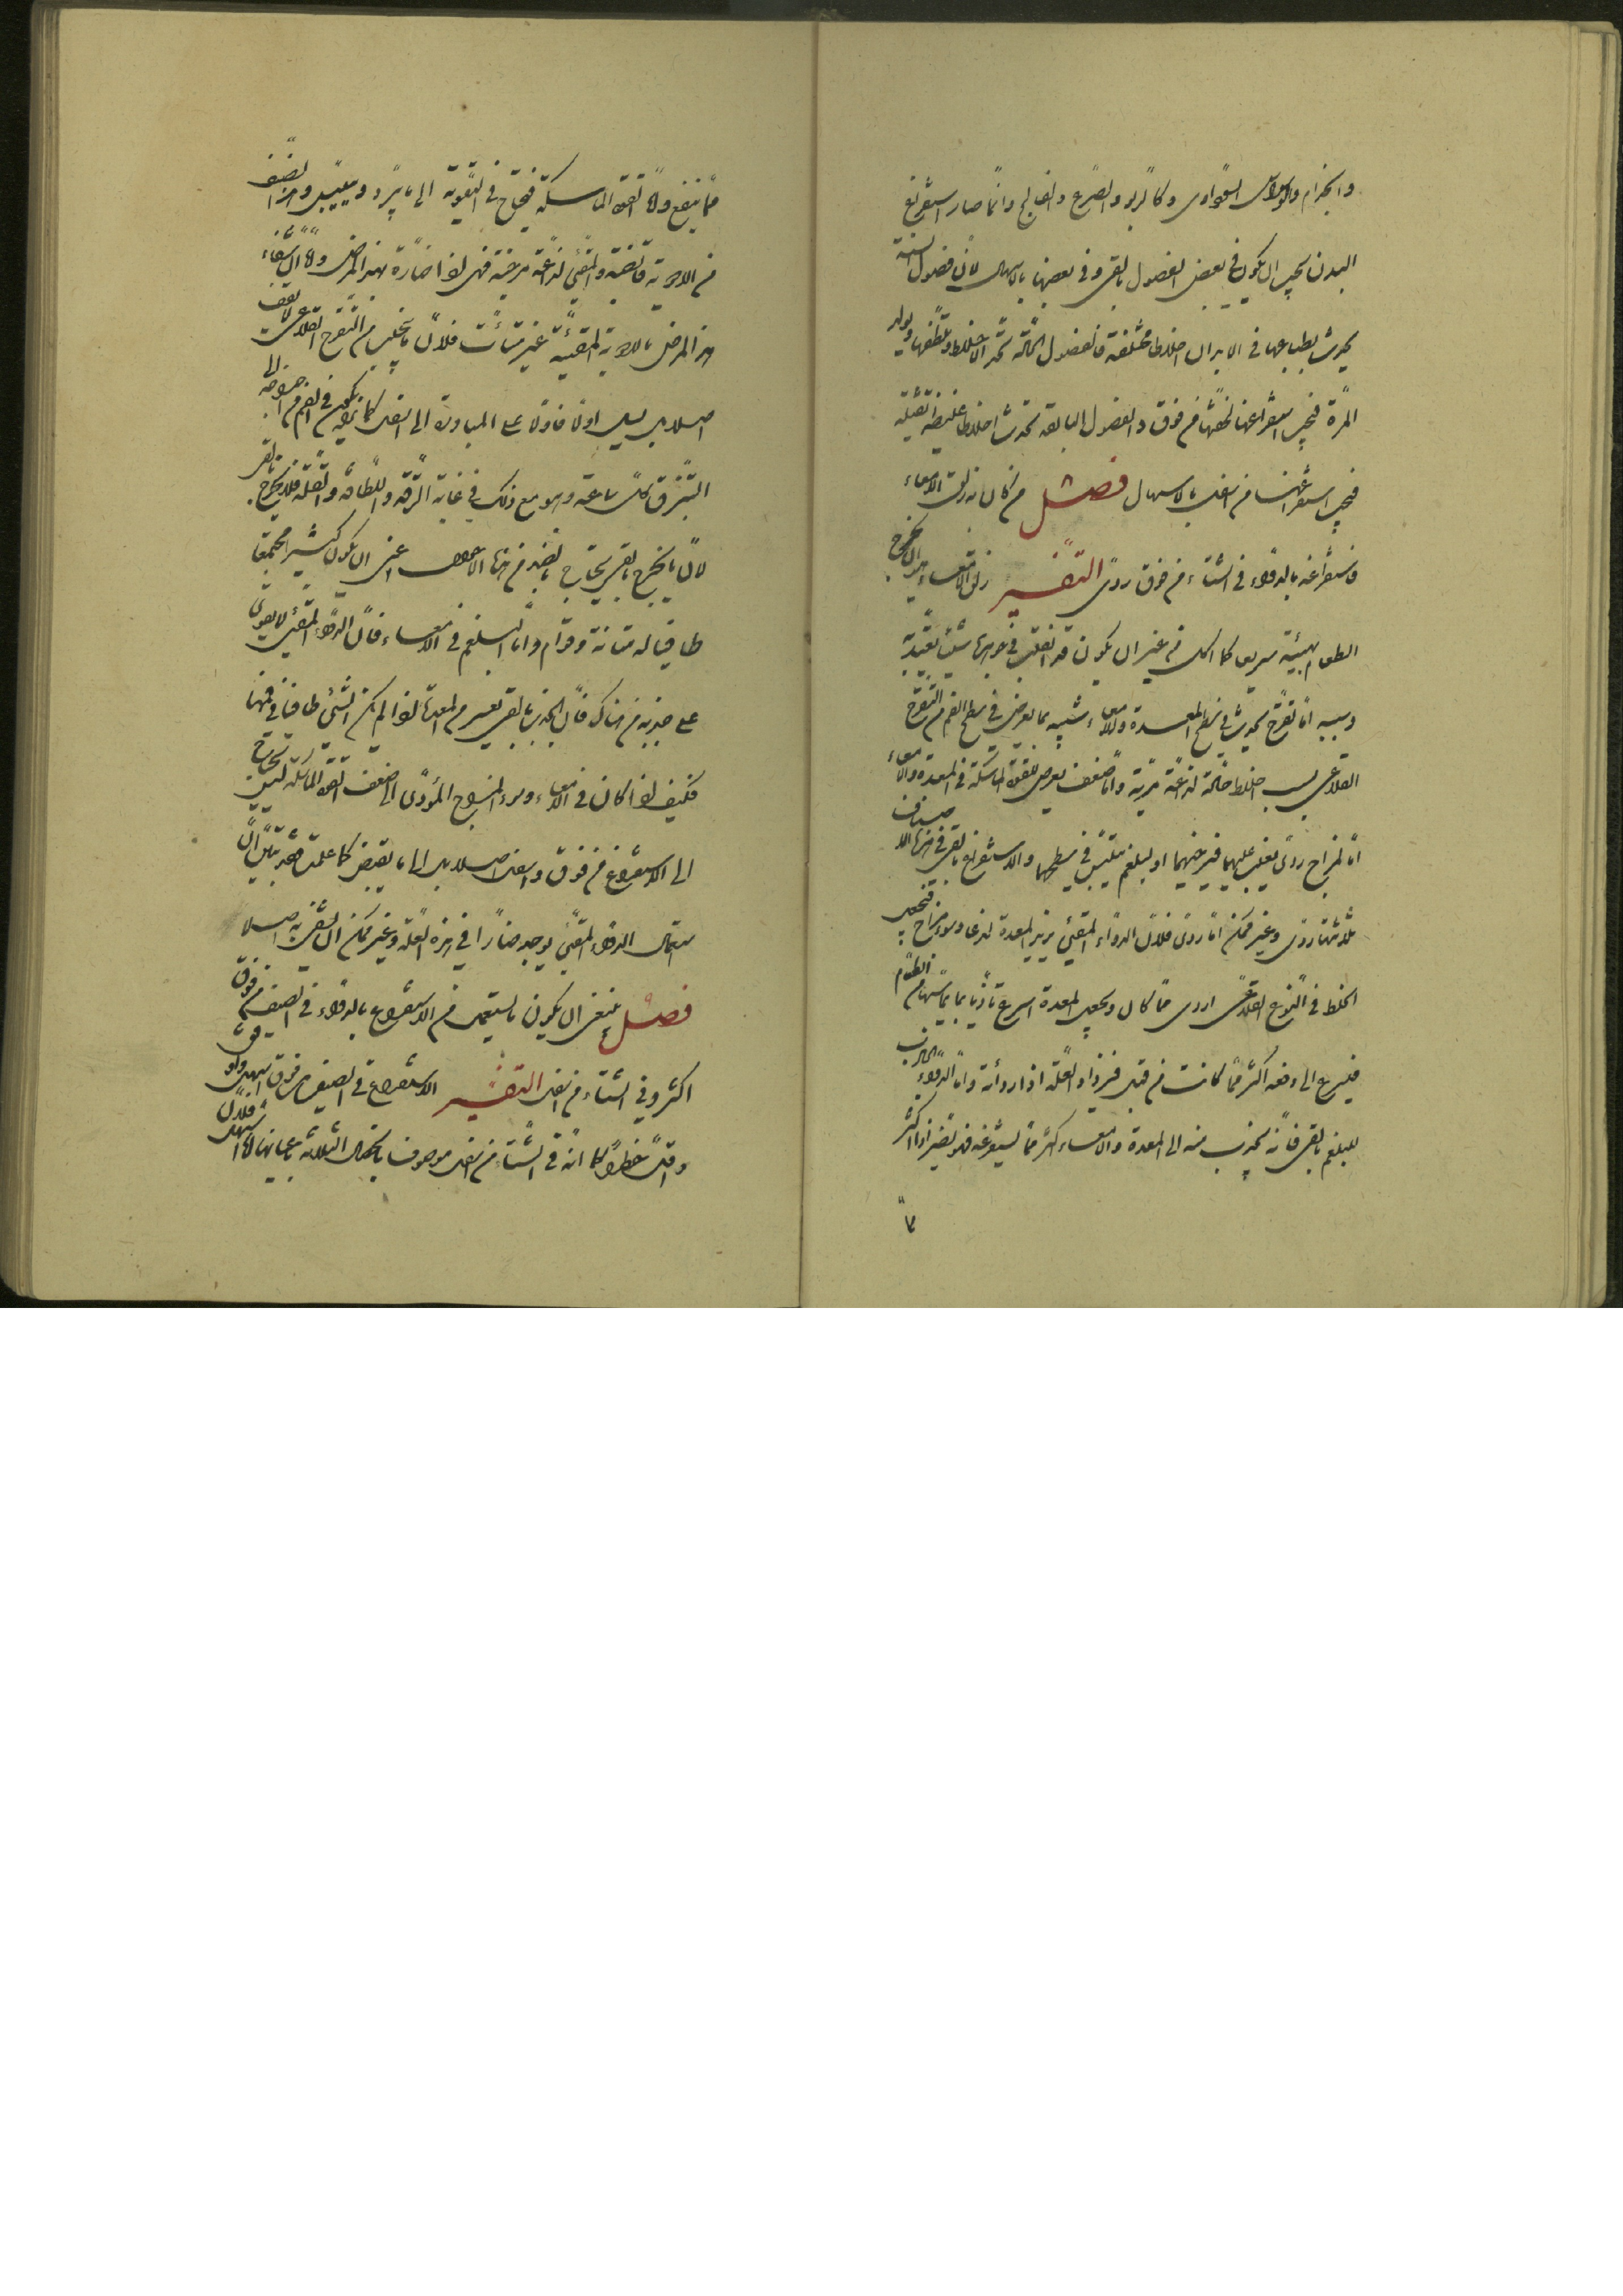 والجذام والوسواس السوداوى وكالربو والصرع والفالج وانما صار استفراغ
البدن يجب ان يكون فى بعض الفصول بالقى وفى بعضها بالاسهال لان فصول السنة
يحدث بطباعها فى الابدان اخلاط مختلفة فالفصول الحارة تحد الاخلاط وتلطفها ويولد
المرة فيجب استفراغها لخفتها من فوق والفصول الباردة تحدث اخلاط غليظة ثقيلة
فيجب استفراغها من اسفل بالاسهال فصل من كان به زلق الامعاء
فاستفراغه بالدواء فى الشتاء من فوق ردى التفسير زلق الامعاء هو ان يخرج
الطعام بهيئته سريعا كما اكل من غير ان يكون قد انقلب فى جوهرها شيئا يعتد به
وسببه اما تقرح يحدث فى سطح المعدة والامعاء شبيه بما يعرض فى سطح الفم من التقرح
القلاعى بسبب اخلاط حادة لذاعة مرية واما ضعف يعرض للقوة الماسكة فى المعدة والامعاء
اما لمزاج ردى يغلب عليهما فيرخيهما او لبلغم يتلبس فى سطحهما والاستفراغ بالقى فى هذه الاصناف
ثلاثتها ردى وغير ممكن اما ردى فلان الدواء المقيئ يزيد المعدة لذعا وسوء مزاج فيجعل
الخلط فى النوع القلاعى اردى مما كان ويجعل المعدة اسرع تأذيا بما يماسها من الطعام
فيسرع الى دفعه اكثر مما كانت من قبل فيزداد العلة اذا رداءة واما الدواء الجاذب
للبلغم بالقى فانه يجذب منه الى المعدة والامعاء اكثر مما يستفرغه فهو يضر اذا اكثر
مما ينفع ولان القوة الماسكة فيحتاج فى التقوية الى ما يبرد وييبس وهذا الصنف
من الادوية قابضة والمقيئ لذاعة مرخية فهى اذا ضارة بهذا المرض ولان استفراغ
هذا المرض بالادوية المقيئة غير متأت فلان ما يتحلب من التقرح القلاعى لا يقف
اصلا بل يسيل اولا فاولا على المبادرة الى اسفل كما يكون فى الفم من احوجه الى
التبزق كل ساعة وهو مع ذلك فى غاية الرقة واللطافة والقلة فلا يخرج بالقى
لان ما يخرج بالقى يحتاج بالضد من هذه الاوصاف اعنى ان يكون كثيرا مجتمعا
طافيا له متانة وقوام واما البلغم فى الامعاء فان الدواء المقيئ لا يقوى
على جذبه من هناك فان الجذب بالقى يعسر من المعدة اذا لم يكن الشئ طافيا فى فمها
فكيف اذا كان فى الامعاء وسوء المزاج المؤدى الى ضعف القوة الماسكة ليس يحتاج
الى الاستفراغ من فوق واسفل اصلا بل الى ما يقبض كما علمت فقد تبين ان
استعمال الدواء المقيئ يوجد ضارا فى هذه العلة وغير ممكن ان يستفرغ به اصلا
فصل ينبغى ان يكون ما يستعمل من الاستفراغ بالدواء فى الصيف من فوق
اكثر وفى الشتاء من اسفل التفسير الاستفراغ فى الصيف من فوق اسهل
واقل خطرا كما انه فى الشتاء من اسفل موصوف بالخصال الثلاثة باعيانها